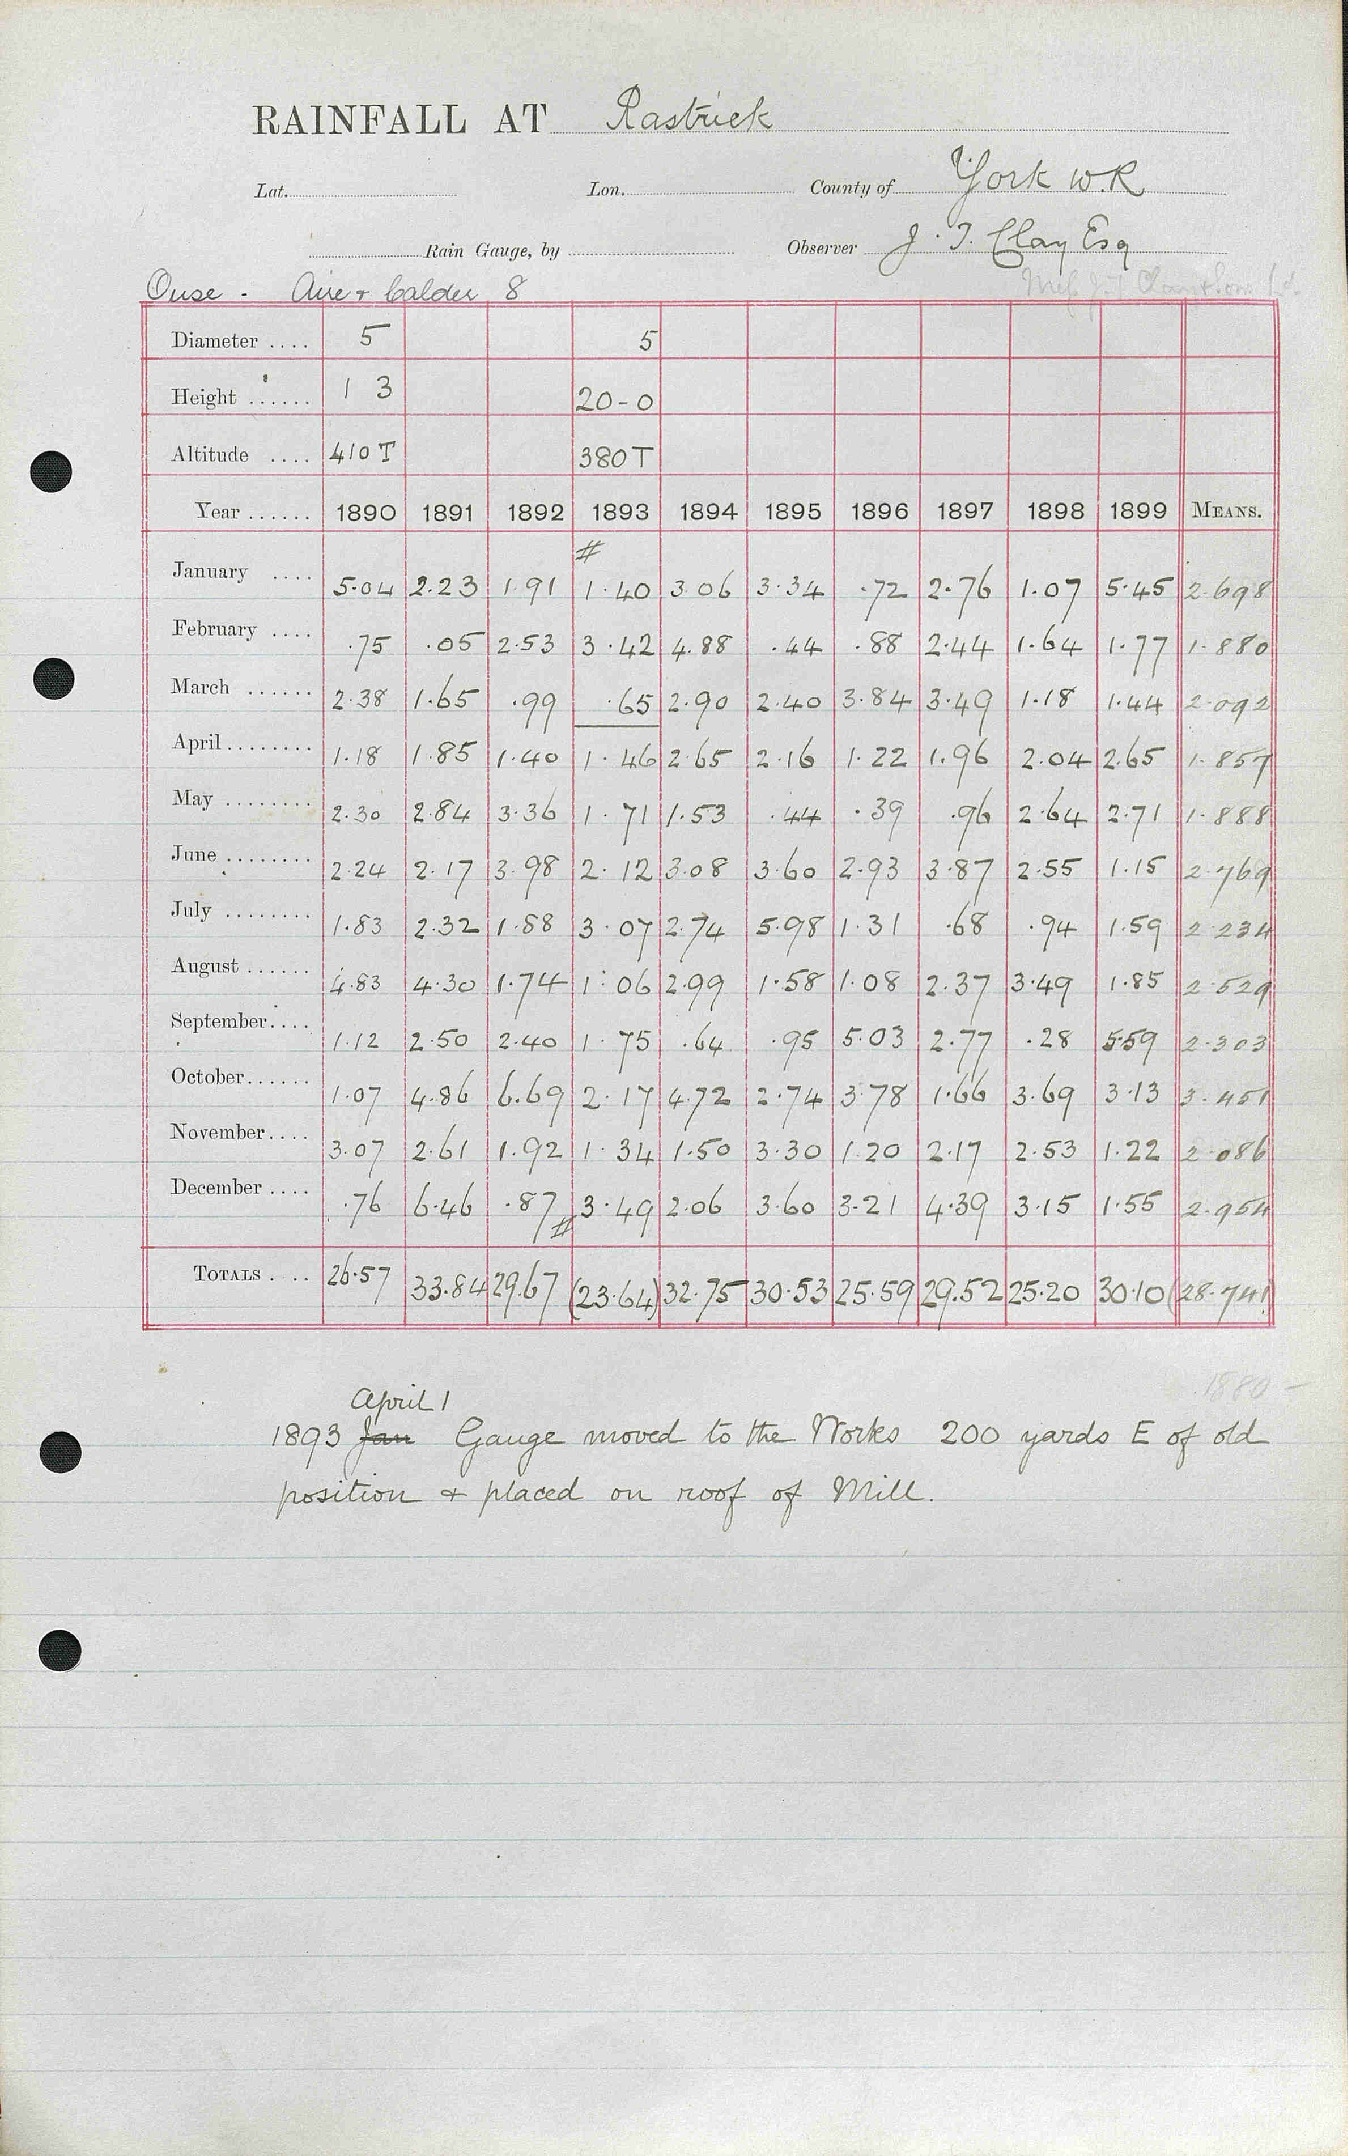 RAINFALL AT Rastrick
Lat. Lon. County of York W.R
Rain Gauge, by Observer J. T. Clay Esq
Ouse - Aire + Calder 8
Diameter .... 5 5
Height ...... 1 3 20-0
Altitude .... 410 T 380 T
Year ...... 1890 1891 1892 1893 1894 1895 1896 1897 1898 1899 MEANS.
#
January .... 5.04 2.23 1.91 1.40 3.06 3.34 .72 2.76 1.07 5.45 2.698
February .... .75 .05 2.53 3.42 4.88 .44 .88 2.44 1.64 1.77 1.880
March ...... 2.38 1.65 .99 .65 2.90 2.40 3.84 3.49 1.18 1.44 2.092
April ........ 1.18 1.85 1.40 1.46 2.65 2.16 1.22 1.96 2.04 2.65 1.857
May ........ 2.30 2.84 3.36 1.71 1.53 .44 .39 .96 2.64 2.71 1.888
June ........ 2.24 2.17 3.98 2.12 3.08 3.60 2.93 3.87 2.55 1.15 2.769
July ........ 1.83 2.32 1.88 3.07 2.74 5.98 1.31 .68 .94 1.59 2.234
August ...... 4.83 4.30 1.74 1.06 2.99 1.58 1.08 2.37 3.49 1.85 2.529
September.... 1.12 2.50 2.40 1.75 .64 .95 5.03 2.77 .28 5.59 2.303
October...... 1.07 4.86 6.69 2.17 4.72 2.74 3.78 1.66 3.69 3.13 3.451
November.... 3.07 2.61 1.92 1.34 1.50 3.30 1.20 2.17 2.53 1.22 2.086
December .... .76 6.46 .87 # 3.49 2.06 3.60 3.21 4.39 3.15 1.55 2.954
TOTALS .... 26.57 33.84 29.67 (23.64) 32.75 30.53 25.59 29.52 25.20 30.10 (28.741)
1880 -
April 1
1893 Jan Gauge moved to the Works 200 yards E of old
position + placed on roof of Mill.